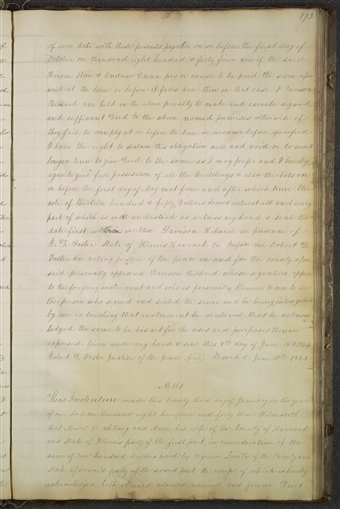 173
of even date with these presents payable on or before the first day of
October one thousand eight hundred & forty four now if the said
Hiram & Andrew pay or cause to be paid the sum afore
said at the time or before it falls due then in that case I Davison
Hibbard am held in the above penalty to make and execute a good
and sufficient Deed to the above named premises otherwise if
they fail to comply at or before the time or manner before specified
I have the right to declare this obligation null and void or to wait
longer time to give Deed to the same as I may prefer and I hereby
agree to give full possession of all the buildings & also the lots on
or before the first day of May next from and after which time the
note of thirteen hundred & fifty Dollars draws interest all and every
part of which is understood as witness my hand & seal the
date first written Davison Hibbard in presence of
R. D. Foster State of Illinois Hancock Co before me Robert D.
Foster an acting justice of the peace in and for the county afore
said personally appeared Davison Hibbard whose signature appears
to the foregoing instrument and who is personally known to me to be
the person who signed and sealed the same and he being
by me in touching that instrument he declared that he acknow
ledged the same to be his act for the uses and purposes therein
expressed. Given under my hand & seal this day of June
Robert D. Foster Justice of the peace Recorded June
No 161
This Indenture made this twenty third day of January in the year
of our Lord one thousand eight hundred and forty Witnesseth
that and his wife of the County of Hancock
and State of Illinois party of the first part, in consideration of the
sum of One hundred dollars paid by Smith of the County and
State aforesaid party of the second part the receipt of which is hereby
acknowledged, hath